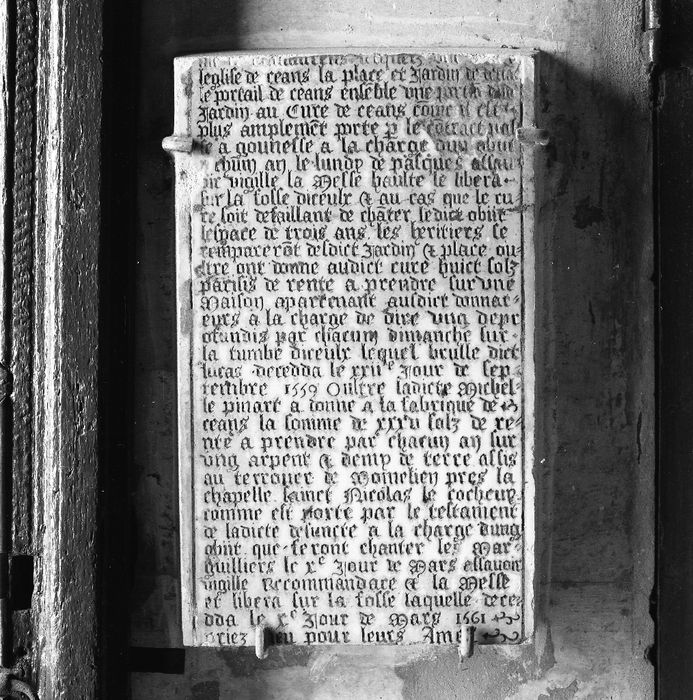 leglise de ceans la place et Jardin
le portail de ceans enseble vne
Jardin au Cure de ceans côme il est
plus amplemẽt porte p le côtract pas
se a gounesse a la charge dun obiit
chũn an le lundy de pasques assau
oir vigille la Messe haulte le libera
sur la fosse diceulx & au cas que le cu
re soit defaillant de chãter ledict obiit
lespace de trois ans les heritiers se
rempareroñt desdict Jardin & place ou
ltre ont donne audict cure huict solz
parisis de rente a prendre sur vne
Maison apartenant ausdict donnat
eurs a la charge de dire vng depr
ofundis par chacum dimanche sur
la tumbe diceulx lequel brulle dict
lucas decedda le xxiie Jour de sep
tembre 1559 Oultre ladicte Michel
le pinart a donne a la fabrique de
ceans la somme de xxxv solz de re
nte a prendre par chacun an sur
vng arpent & demy de terre assis
au terrouer de Bomelien pres la
chapelle sainct Nicolas le cocheux
comme est porte par le testament
de ladicte defuncte a la charge dung
obiit que feront chanter les Mar
guilliers le xe Jour de Mars assavoir
vigille Recommandace & la Messe
et libera sur la fosse laquelle dece
dda le xe Jour de Mars 1561
priez Dieu pour leurs Ames